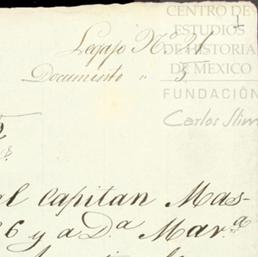 CENTRO DE
ESTUDIOS
DE HISTORIA
DE MEXICO
FUNDACIÓN
Carlos Slim
1
Legajo Nº 21
Documento " 5
al Capitan Mas-
6 y a D.a Mar.a